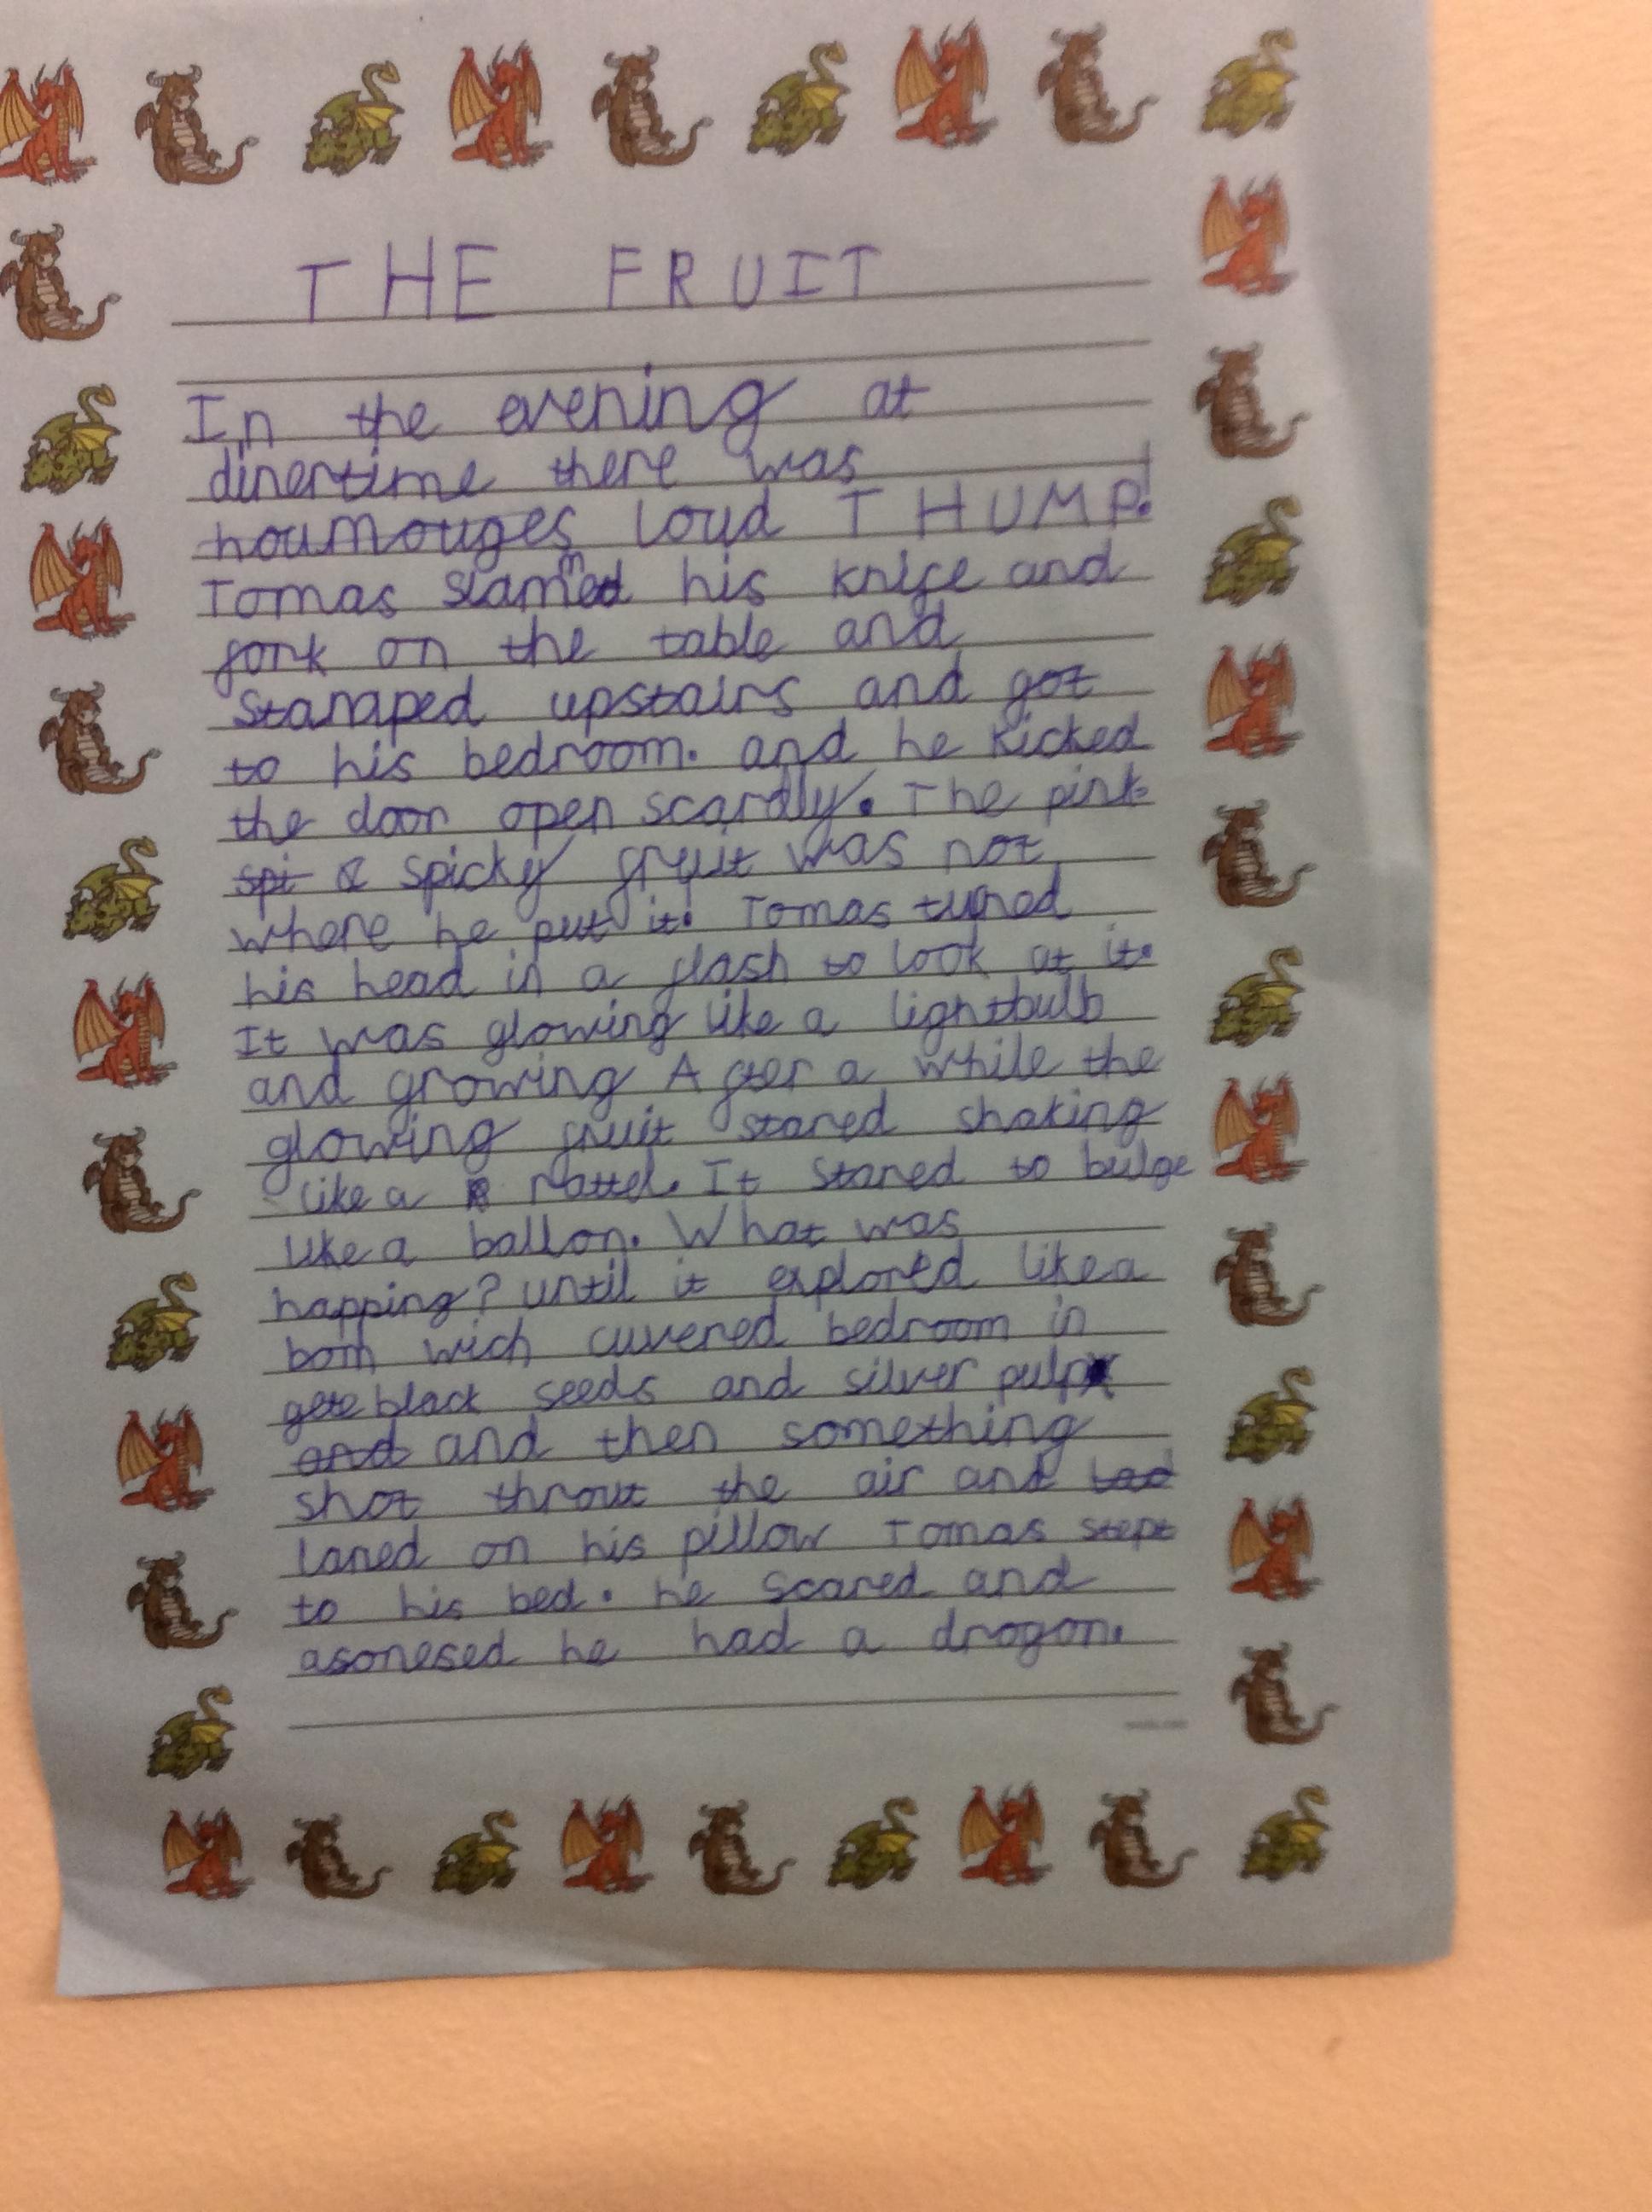 THE FRUIT
In the evening at
dinertime there was
houmouges loud THUMP!
Tomas slammed his knife and
fork on the table and
Stamaped upstairs and got
to his bedroom. and he kicked
the door open scardly. The pink
spi & spicky fruit was not
where he put it. Tomas turned
his head in a flash to look at it.
It was glowing like a lightbulb
and growing After a while the
glowing fruit stared shaking
like a R rattel. It Stared to bulge
like a ballon. What was
happing? until it explored like a
bom wich cuvered bedroom in
gete black seeds and silver pulp
and and then something
shot throut the air and lad
laned on his pillow Tomas stept
to his bed. he scared and
asonesed he had a drogon.